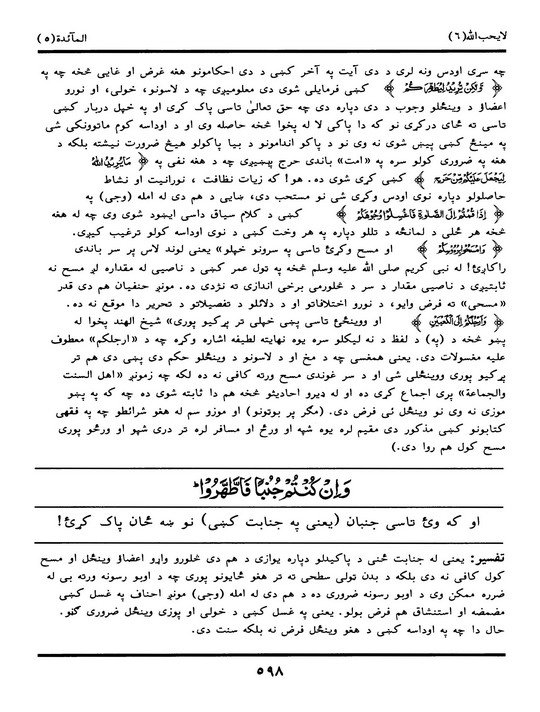 لایحب الله (٦)
المآئدة (٥)
چه سړی اودس ونه لری د دی آیت په آخر کښی د دی احکامونو هغه غرض او غایی څخه چه په
﴿ وَلٰكِنْ يُّرِيْدُ لِيُطَهِّرَكُمْ ﴾ کښی فرمایلی شوی دی معلومیږی چه د لاسونو، خولی، او نورو
اعضاؤ د وینځلو وجوب د دی دپاره دی چه حق تعالیٰ تاسی پاک کړی او په خپل دربار کښی
تاسی ته ځای درکړی نو که دا پاکی لا له پخوا څخه حاصله وی او د اوداسه کوم ماتوونکی شی
په مینځ کښی پیښ شوی نه وی نو د پاکو اندامونو د بیا پاکولو هیڅ ضرورت نیشته بلکه د
هغه په ضروری کولو سره په «امت» باندی حرج پیښیږی چه د هغه نفی په ﴿ مَا يُرِيْدُ اللهُ
لِيَجْعَلَ عَلَيْكُمْ مِّنْ حَرَجٍ ﴾ کښی کړی شوی ده. هو! که زیات نظافت، نورانیت او نشاط
حاصلولو دپاره نوی اودس وکړی شی نو مستحب دی، ښایی د هم دی له امله (وجی) په
﴿ إِذَا قُمْتُمْ إِلَى الصَّلٰوةِ فَاغْسِلُوْا وُجُوْهَكُمْ ﴾ کښی د کلام سیاق داسی ایښود شوی وی چه له هغه
څخه هر ځلی د لمانځه د تللو دپاره په هر وخت کښی د نوی اوداسه کولو ترغیب کیږی.
﴿ وَامْسَحُوْا بِرُءُوْسِكُمْ ﴾ او مسح وکړئ تاسی په سرونو خپلو» یعنی لوند لاس پر سر باندی
راکاږئ! له نبی کریم صلی الله علیه وسلم څخه په تول عمر کښی د ناصیی له مقداره لږ مسح نه
ثابتیږی د ناصیی مقدار د سر د څلورمی برخی اندازی ته نژدی ده. مونږ حنفیان هم دی قدر
«مسحی» ته فرض وایو، د نورو اختلافاتو او د دلائلو د تفصیلاتو د تحریر دا موقع نه ده.
﴿ وَاَرْجُلَكُمْ إِلَى الْكَعْبَيْنِ ﴾ او ووینځئ تاسی پښی خپلی تر پړکیو پوری» شیخ الهند پخوا له
پښو څخه د (په) د لفظ د نه لیکلو سره یوه نهایته لطیفه اشاره وکړه چه د «ارجلکم» معطوف
علیه مغسولات دی. یعنی همغسی چه د مخ او د لاسونو د وینځلو حکم دی پښی دی هم تر
پړکیو پوری ووینځلی شی او د سر غوندی مسح ورته کافی نه ده لکه چه زمونږ «اهل السنت
والجماعة» پری اجماع کړی ده او له ډیرو احادیثو څخه هم دا ثابته شوی ده چه که په پښو
موزی نه وی نو وینځل ئی فرض دی. (مگر پر بوتونو) او موزو سم له هغو شرائطو چه په فقهی
کتابونو کښی مذکور دی مقیم لره یوه شپه او ورځ او مسافر لره تر دری شپو او ورځو پوری
مسح کول هم روا دی.)
وَاِنْ كُنْتُمْ جُنُبًا فَاطَّهَّرُوْا ؕ
او که وئ تاسی جنبان (یعنی په جنابت کښی) نو ښه ځان پاک کړئ!
تفسیر: یعنی له جنابت ځنی د پاکیدلو دپاره یوازی د هم دی څلورو واړو اعضاؤ وینځل او مسح
کول کافی نه دی بلکه د بدن تولی سطحی ته تر هغو ځایونو پوری چه د اوبو رسونه ورته بی له
ضرره ممکن وی د اوبو رسونه ضروری ده د هم دی له امله (وجی) مونږ احناف په غسل کښی
مضمضه او استنشاق هم فرض بولو. یعنی په غسل کښی د خولی او پوزی وینځل ضروری گڼو.
حال دا چه په اوداسه کښی د هغو وینځل فرض نه بلکه سنت دی.
٥٩٨